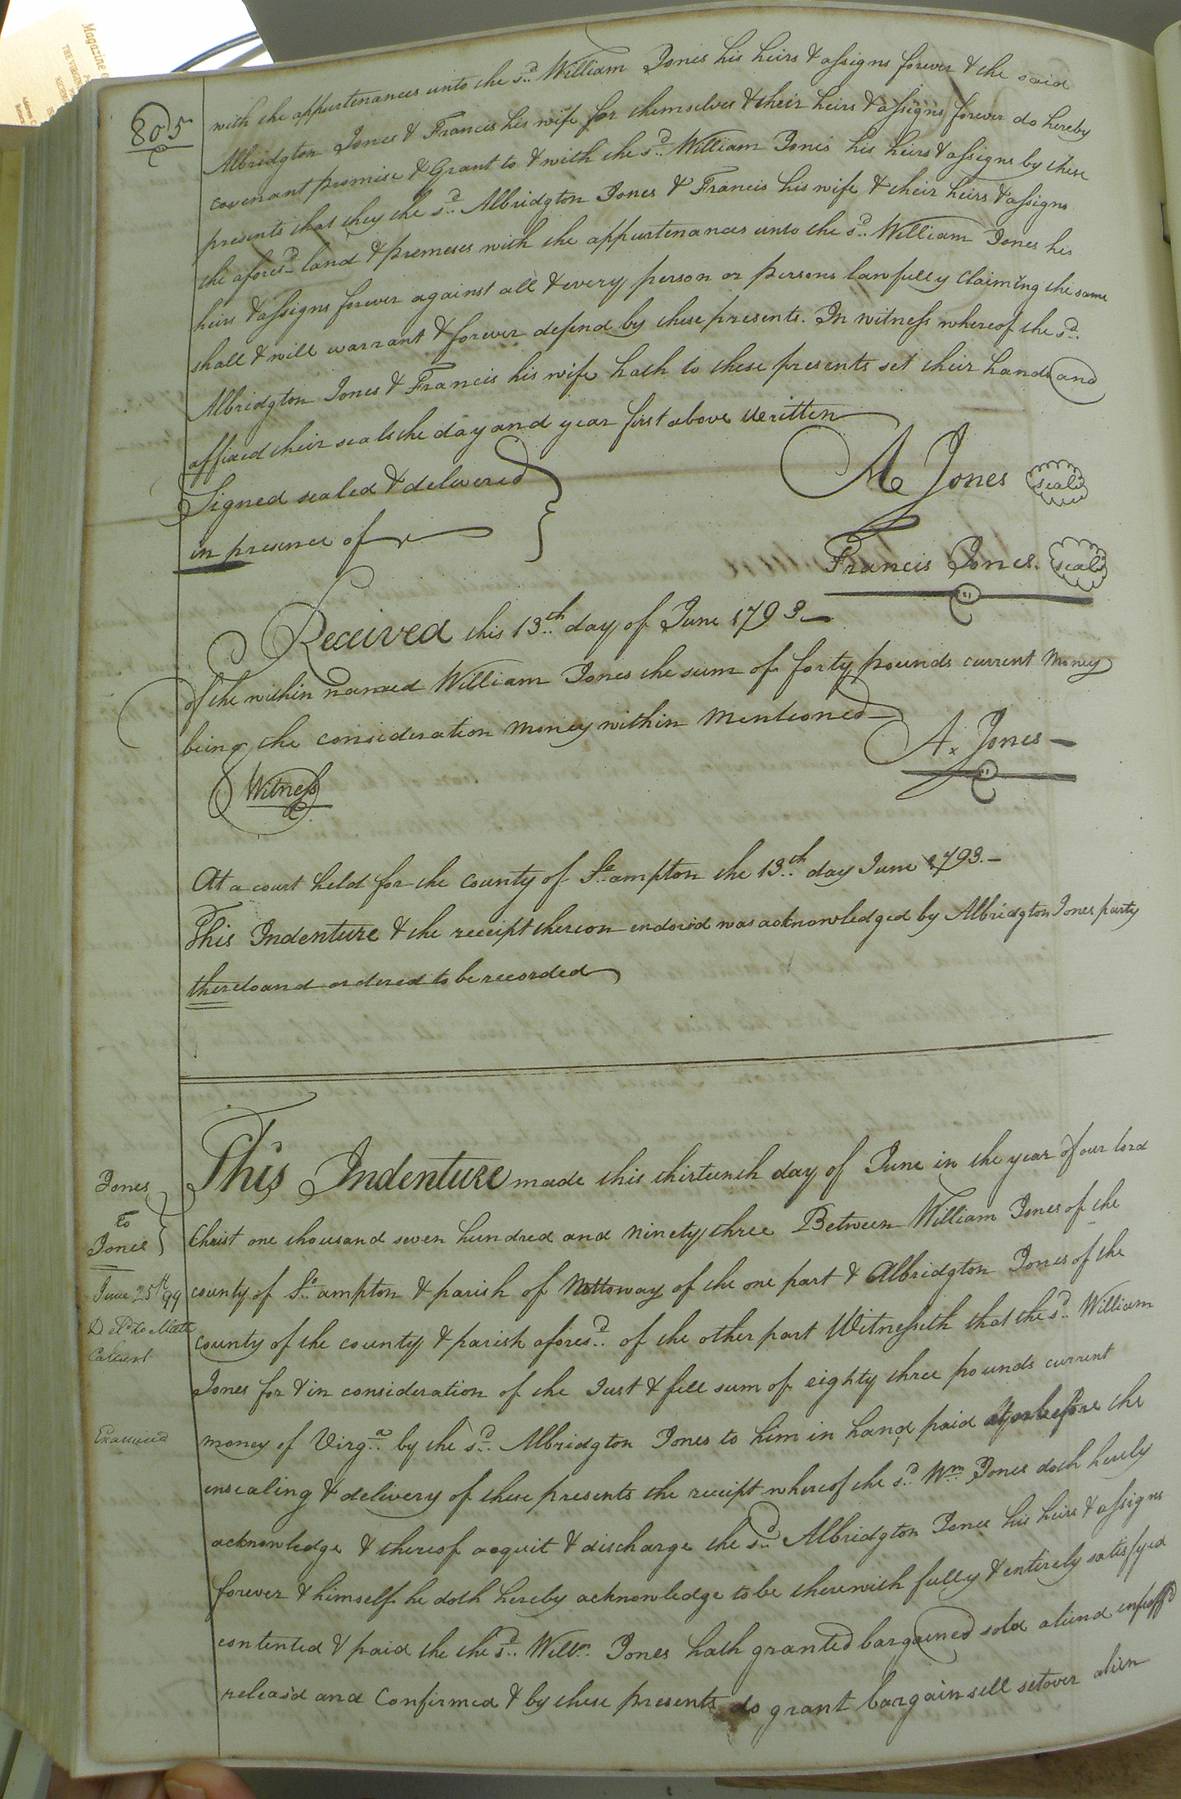 Magazine
805
with the appurtenances unto the sd. William Jones his heirs & assigns forever & the said
Albridgton Jones & Francis his wife for themselves & their heirs & assigns forever do hereby
covenant promise & Grant to & with the sd. William Jones his heirs & assigns by these
presents that they the sd. Albridgton Jones & Francis his wife & their heirs & assigns
the aforesd. land & premeses with the appurtenances unto the sd. William Jones his
heirs & assigns forever against all & every person or persons lawfully Claiming the same
shall & will warrant & forever defend by these presents. In witness whereof the sd.
Albridgton Jones & Francis his wife hath to these presents set their hands and
affixed their seals the day and year first above written
Signed sealed & delivered
in presence of
A Jones seal
Francis Jones. seal
Received this 13th day of June 1793
of the within named William Jones the sum of forty pounds current Money
being the consideration Money within Mentioned
A. Jones
Witness
At a court held for the county of So.ampton the 13th day June 1793.
This Indenture & the receipt thereon endorsd was acknowledged by Albridgton Jones party
thereto and ordered to be recorded
Jones
to
Jones
June 25th 99
Deld. to Matt
Calvert
Examined
This Indenture made this thirteenth day of June in the year of our lord
Christ one thousand seven hundred and Ninety three Between William Jones of the
county of So.ampton & parish of Nottoway of the one part & Albridgton Jones of the
County of the county & parish aforesd. of the other part Witnesseth that the sd. William
Jones for & in consideration of the Just & full sum of eighty three pounds current
money of Virga. by the sd. Albridgton Jones to him in hand paid at or before the
ensealing & delivery of these presents the receipt whereof the sd. Wm. Jones doth hereby
acknowledge & thereof acquit & discharge the sd. Albridgton Jones his heirs & assigns
forever & himself he doth hereby acknowledge to be therewith fully & entirely satisfyed
contented & paid the the sd. Willm. Jones hath granted bargained sold aliend enfeoffd
releasd and Confirmed & by these presents do grant bargain sell setover alien